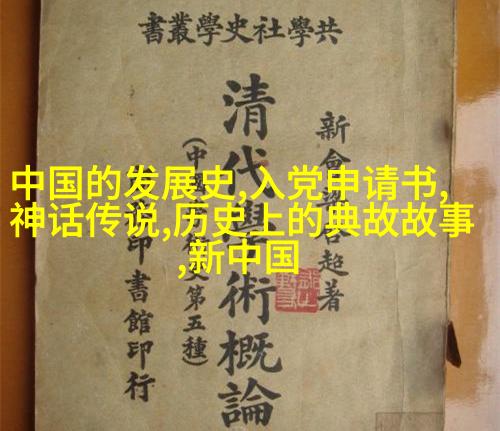 共學社史學叢書
新會梁啓超著
清代學術概論
(中國學術史第五種)
印書館印行
中国的发展史,入党申请书,
神话传说,历史上的典故故事
,新中国